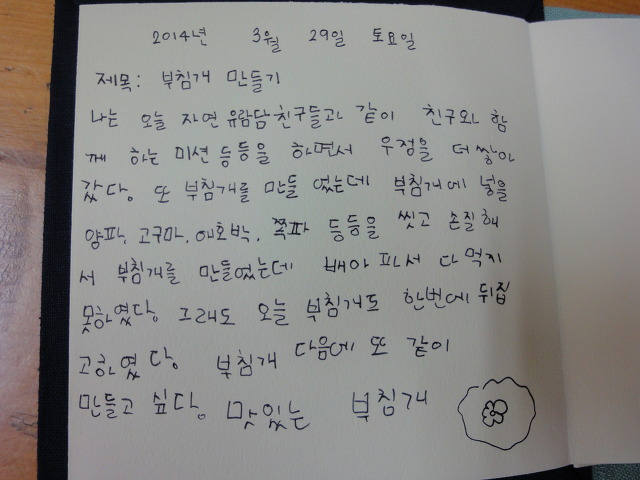 2014년 3월 29일 토요일
제목: 부침개 만들기
나는 오늘 자연 유람담 친구들과 같이 친구와 함
께 하는 미션 등등을 하면서 우정을 더 쌓아
갔다. 또 부침개를 만들 었는데 부침개에 넣을
양파, 고구마, 애호박, 쪽파 등등을 씻고 손질해
서 부침개를 만들었는데 배아파서 다 먹지
못하였다. 그래도 오늘 부침개도 한번에 뒤집
고하였다. 부침개 다음에 또 같이
만들고 싶다. 맛있는 부침개